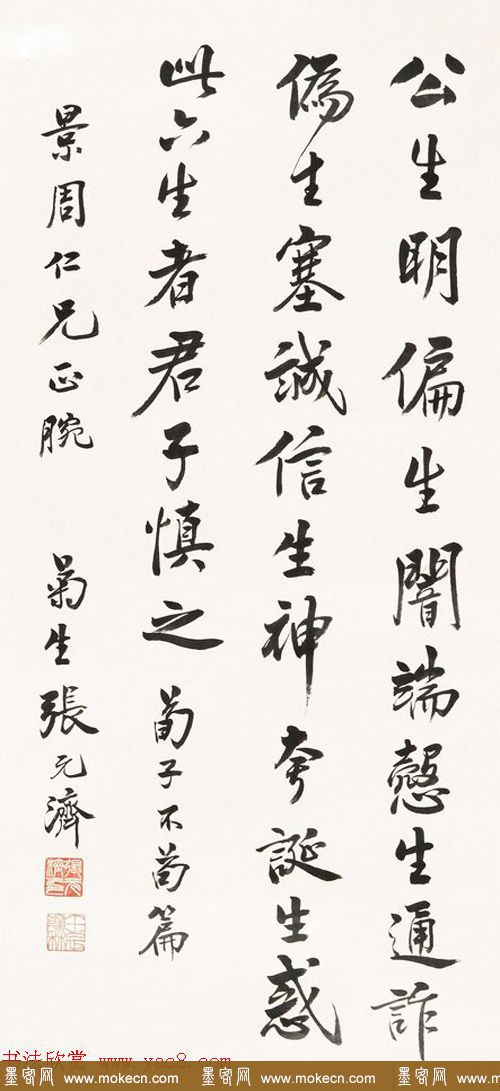 公生明偏生闇端愨生通詐
偽生塞誠信生神夸誕生惑
此六生者君子慎之 荀子不苟篇
景周仁兄正腕 菊生張元濟
书法欣赏 www.yac8.com
墨客网 www.mokecn.com 墨客网 www.mokecn.com 墨客网